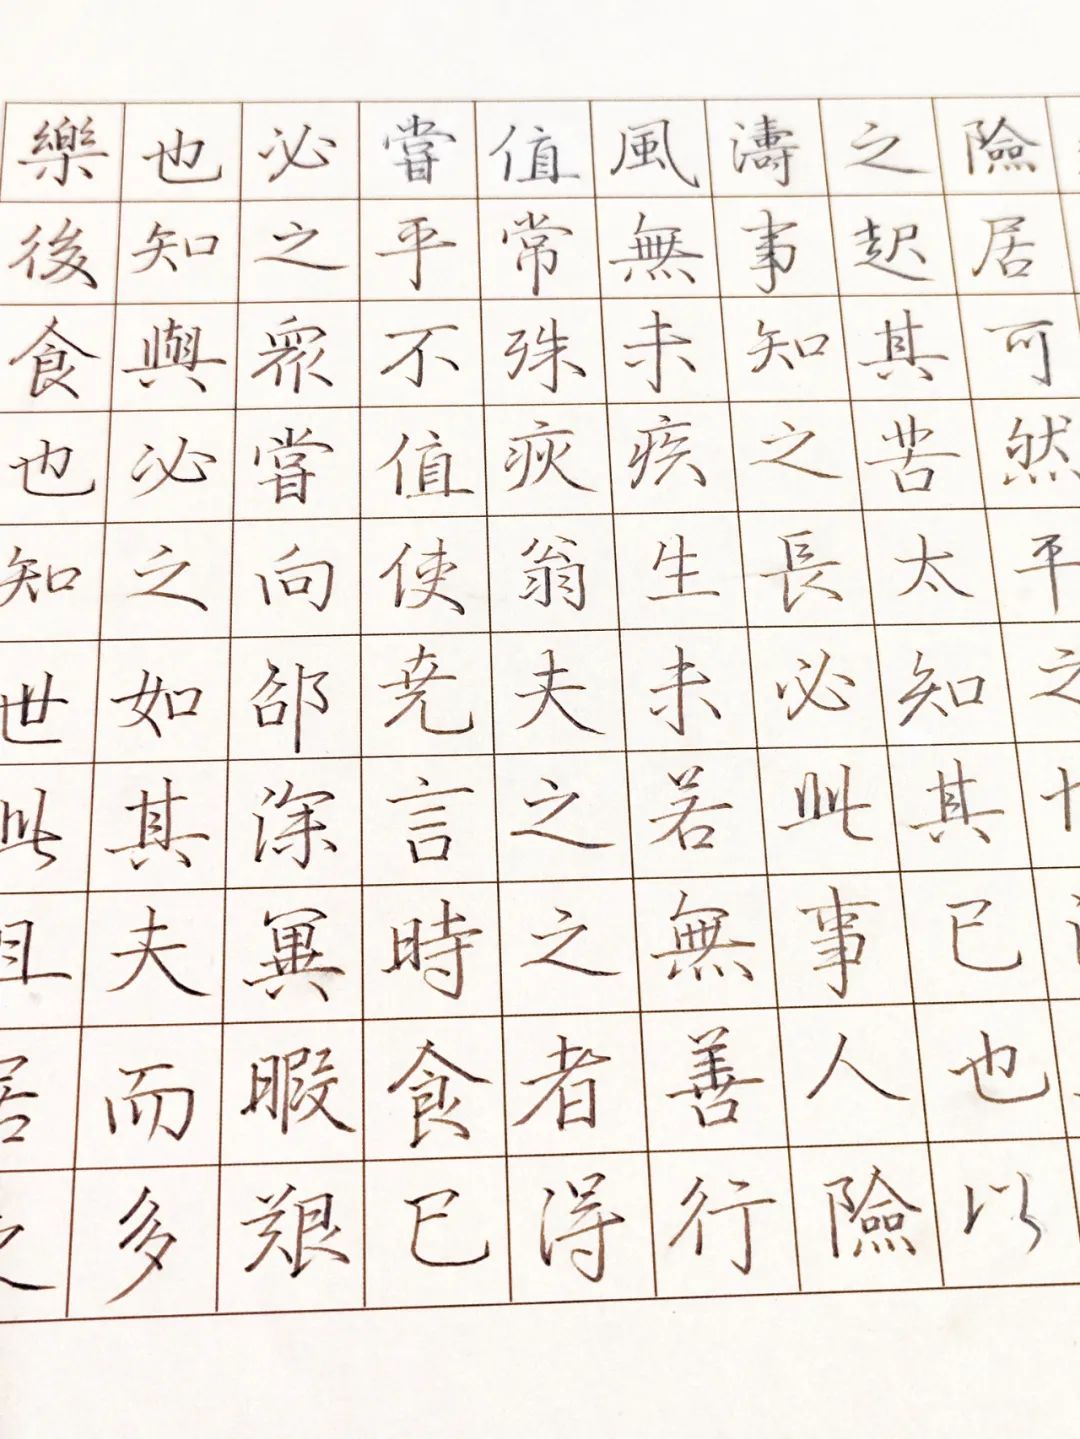 樂也必嘗值風濤之險
後知之平常無事起居
食與眾不殊未知其可
也必嘗值疢疾之苦然
知之向使翁生長太平
世如邵尭夫未必知之
此其深言之若此其
且夫冀時之無事已
居而暇食者善人也
之多艱已得行險以